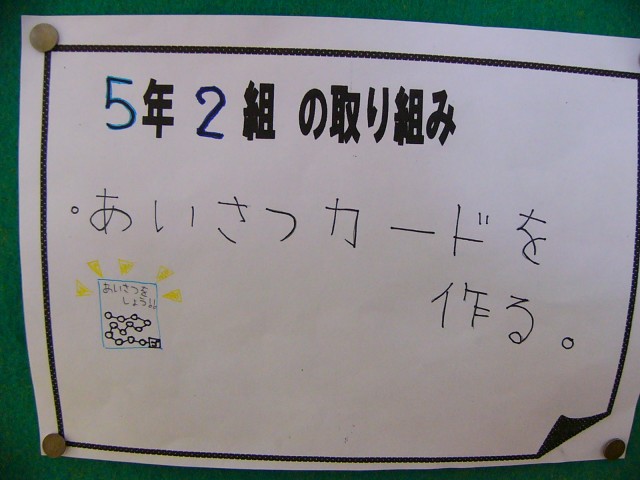 5年2組の取り組み
。あいさつカードを
作る。
あいさつを
しよう!!